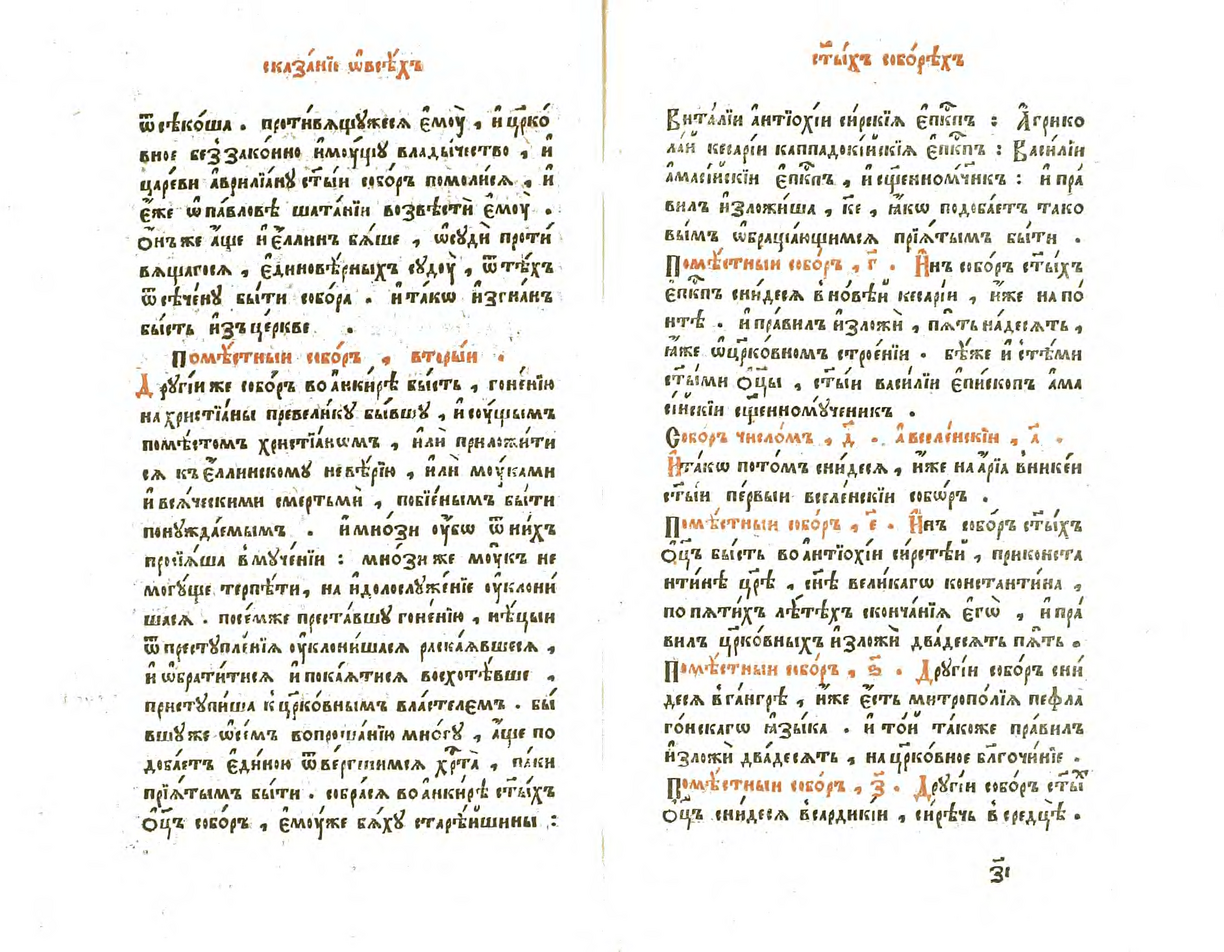 сказа́нїе ѡ҆всѣ́хъ
ѿсѣко́ша . проти́вѧщꙋжесѧ є҆мꙋ̀ , и҆ цр҃ко́
вное беззако́нно и҆мꙋ́щꙋ влады́чество , и҆
царе́ви а҆врилїа́нꙋ ст҃ы́и собо́ръ помоли́сѧ , и҆
є҆́же ѡ҆ па́вловѣ шата́нїи возвѣстѝ є҆мꙋ̀ .
Ѻ҆́нъ же а҆́ще и҆ є҆́ллинъ бѧ́ше , ѡ҆сꙋдѝ проти́
вѧщагосѧ , є҆диновѣ́рныхъ сꙋдо́ѵ , ѿ тѣ́хъ
ѿсѣ́ченꙋ бы́ти собо́ра . и҆ та́кѡ и҆згна́нъ
бы́сть и҆зъ це́ркве .
Помѣ́стныи собо́ръ , вторы́и .
Дрꙋгі́и же собо́ръ во а҆нки́рѣ бы́сть , гоне́нїю
на хрїстїа́ны превели́кꙋ бы́вшꙋ , и҆ сꙋ́щымъ
помѣ́стомъ хрїстїа́нѡмъ , и҆лѝ приложи́ти
сѧ къ є҆́ллинскомꙋ невѣ́рїю , и҆лѝ мꙋ́ками
и҆ всѧ́ческими смертьмѝ , побїе́нымъ бы́ти
понꙋжда́емымъ . и҆ мно́зи ᲂу҆́бѡ ѿ ни́хъ
просїѧ́ша в мꙋче́нїи : мно́зи же мꙋ́къ не
могꙋ́ще терпѣ́ти , на и҆долослꙋже́нїе ᲂу҆клони́
шасѧ . посе́мже преста́вшꙋ гоне́нїю , нѣ́цыи
ѿ престꙋпле́нїѧ ᲂу҆клони́шасѧ раска́ѧвшесѧ ,
и҆ ѡ҆брати́тисѧ и҆ пока́ѧтисѧ восхотѣ́вше ,
пристꙋпи́ша к цр҃ко́внымъ вла́стелемъ . бы́
вшꙋ же ѡ҆ се́мъ вопроша́нїю мно́гꙋ , а҆́ще по
доба́етъ є҆ди́ною ѿве́ргшимсѧ хрт҃а̀ , па́ки
прїѧ́тымъ бы́ти . собра́сѧ во а҆нки́рѣ ст҃ы́хъ
Ѻ҆ц҃ъ собо́ръ , є҆мꙋ́же бѧ́хꙋ старѣ́йшины :
ст҃ы́хъ собо́рѣхъ
Вита́лїи а҆нтїохі́и си́рскїѧ є҆пк҃пъ : А҆грико
ла́й кесарі́и каппадокі́йскїѧ є҆пк҃пъ : Васи́лїи
а҆масі́йскїи є҆пк҃пъ , и҆ сщ҃енномч҃икъ : и҆ пра́
вилъ и҆зложи́ша , к҃е , ꙗ҆́кѡ подоба́етъ тако
вы́мъ ѡ҆браща́ющимсѧ прїѧ́тымъ бы́ти .
Помѣ́стныи собо́ръ , г҃ . И҆́нъ собо́ръ ст҃ы́хъ
є҆пк҃пъ сни́десѧ в но́вѣй кесарі́и , и҆́же на по́
нтѣ . и҆ пра́вилъ и҆зложѝ , пѧ́ть на́десѧть ,
ꙗ҆́же ѡ҆ цр҃ко́вном строе́нїи . бѣ́ же и҆ с тѣ́ми
ст҃ы́ми Ѻ҆ц҃ы , ст҃ы́и васи́лїи є҆пи́скопъ а҆ма
сі́йскїи сщ҃енномꙋ́ченикъ .
Собо́ръ число́мъ , д҃ . а҆ вселе́нскїи , а҃ .
И҆ та́кѡ пото́мъ сни́десѧ , и҆́же на а҆́рїа в нике́и
ст҃ы́и пе́рвыи вселе́нскїи собѡ́ръ .
Помѣ́стныи собо́ръ , є҃ . И҆́нъ собо́ръ ст҃ы́хъ
Ѻ҆ц҃ъ бы́сть во а҆нтїохі́и си́рстѣй , при конста
нти́нѣ цр҃ѣ̀ , сн҃ѣ вели́кагѡ константи́на ,
по пѧти́хъ лѣ́тѣхъ сконча́нїѧ є҆гѡ̀ , и҆ пра́
вилъ цр҃ко́вныхъ и҆зложѝ два́десѧть пѧ́ть .
Помѣ́стныи собо́ръ , ѕ҃ . Дрꙋгі́и собо́ръ сни́
десѧ в га́нгрѣ , и҆́же є҆́сть митропо́лїѧ пефла
го́нскагѡ ꙗ҆зы́ка . и҆ то́й та́коже пра́вилъ
и҆зложѝ два́десѧть , на цр҃ко́вное бл҃гочи́нїе .
Помѣ́стныи собо́ръ , з҃ . Дрꙋгі́и собо́ръ ст҃ы́х
Ѻ҆ц҃ъ сни́десѧ в сардикі́и , си́рѣчь в средцѣ́ .
з҃і